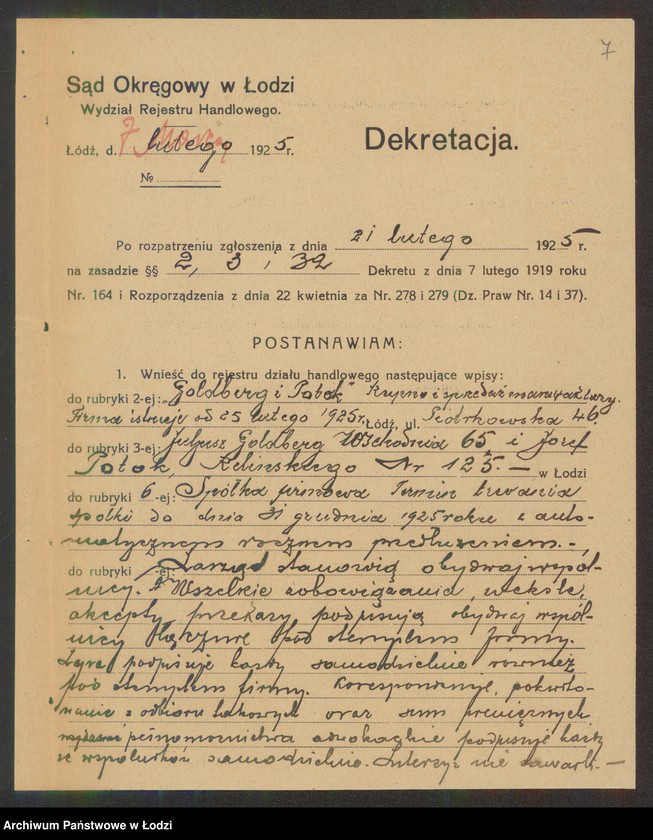 7
Sąd Okręgowy w Łodzi
Wydział Rejestru Handlowego.
Łódź, d. 7 Marca lutego 1925 r.
Dekretacja.
№
Po rozpatrzeniu zgłoszenia z dnia 21 lutego 1925 r.
na zasadzie §§ 2, 3, 32 Dekretu z dnia 7 lutego 1919 roku
Nr. 164 i Rozporządzenia z dnia 22 kwietnia za Nr. 278 i 279 (Dz. Praw Nr. 14 i 37).
POSTANAWIAM:
1. Wnieść do rejestru działu handlowego następujące wpisy:
do rubryki 2-ej: „Goldberg i Potok" Kupno i sprzedaż manufaktury.
Firma istnieje od 25 lutego 1925 r. Łódź, ul. Piotrkowska 46.
do rubryki 3-ej: Juljusz Goldberg Wschodnia 65 i Józef
Potok, Kilińskiego Nr 125. — w Łodzi
do rubryki 6-ej: Spółka firmowa Termin trwania
spółki do dnia 31 grudnia 1925 roku z auto-
matycznem rocznem przedłużeniem. -,
do rubryki -ej: Zarząd stanowią obydwaj wspól-
nicy. Wszelkie zobowiązania, weksle,
akcepty, przekazy podpisują obydwaj wspól-
nicy łącznie pod stemplem firmy.
podpisuje każdy samodzielnie również
pod stemplem firmy. Korespondencję, pokwito-
wanie z odbioru towarów oraz sum pieniężnych
pełnomocnictwa adwokackie podpisuje każdy
ze wspólników samodzielnie. Intercyz nie zawarli. —
Archiwum Państwowe w Łodzi